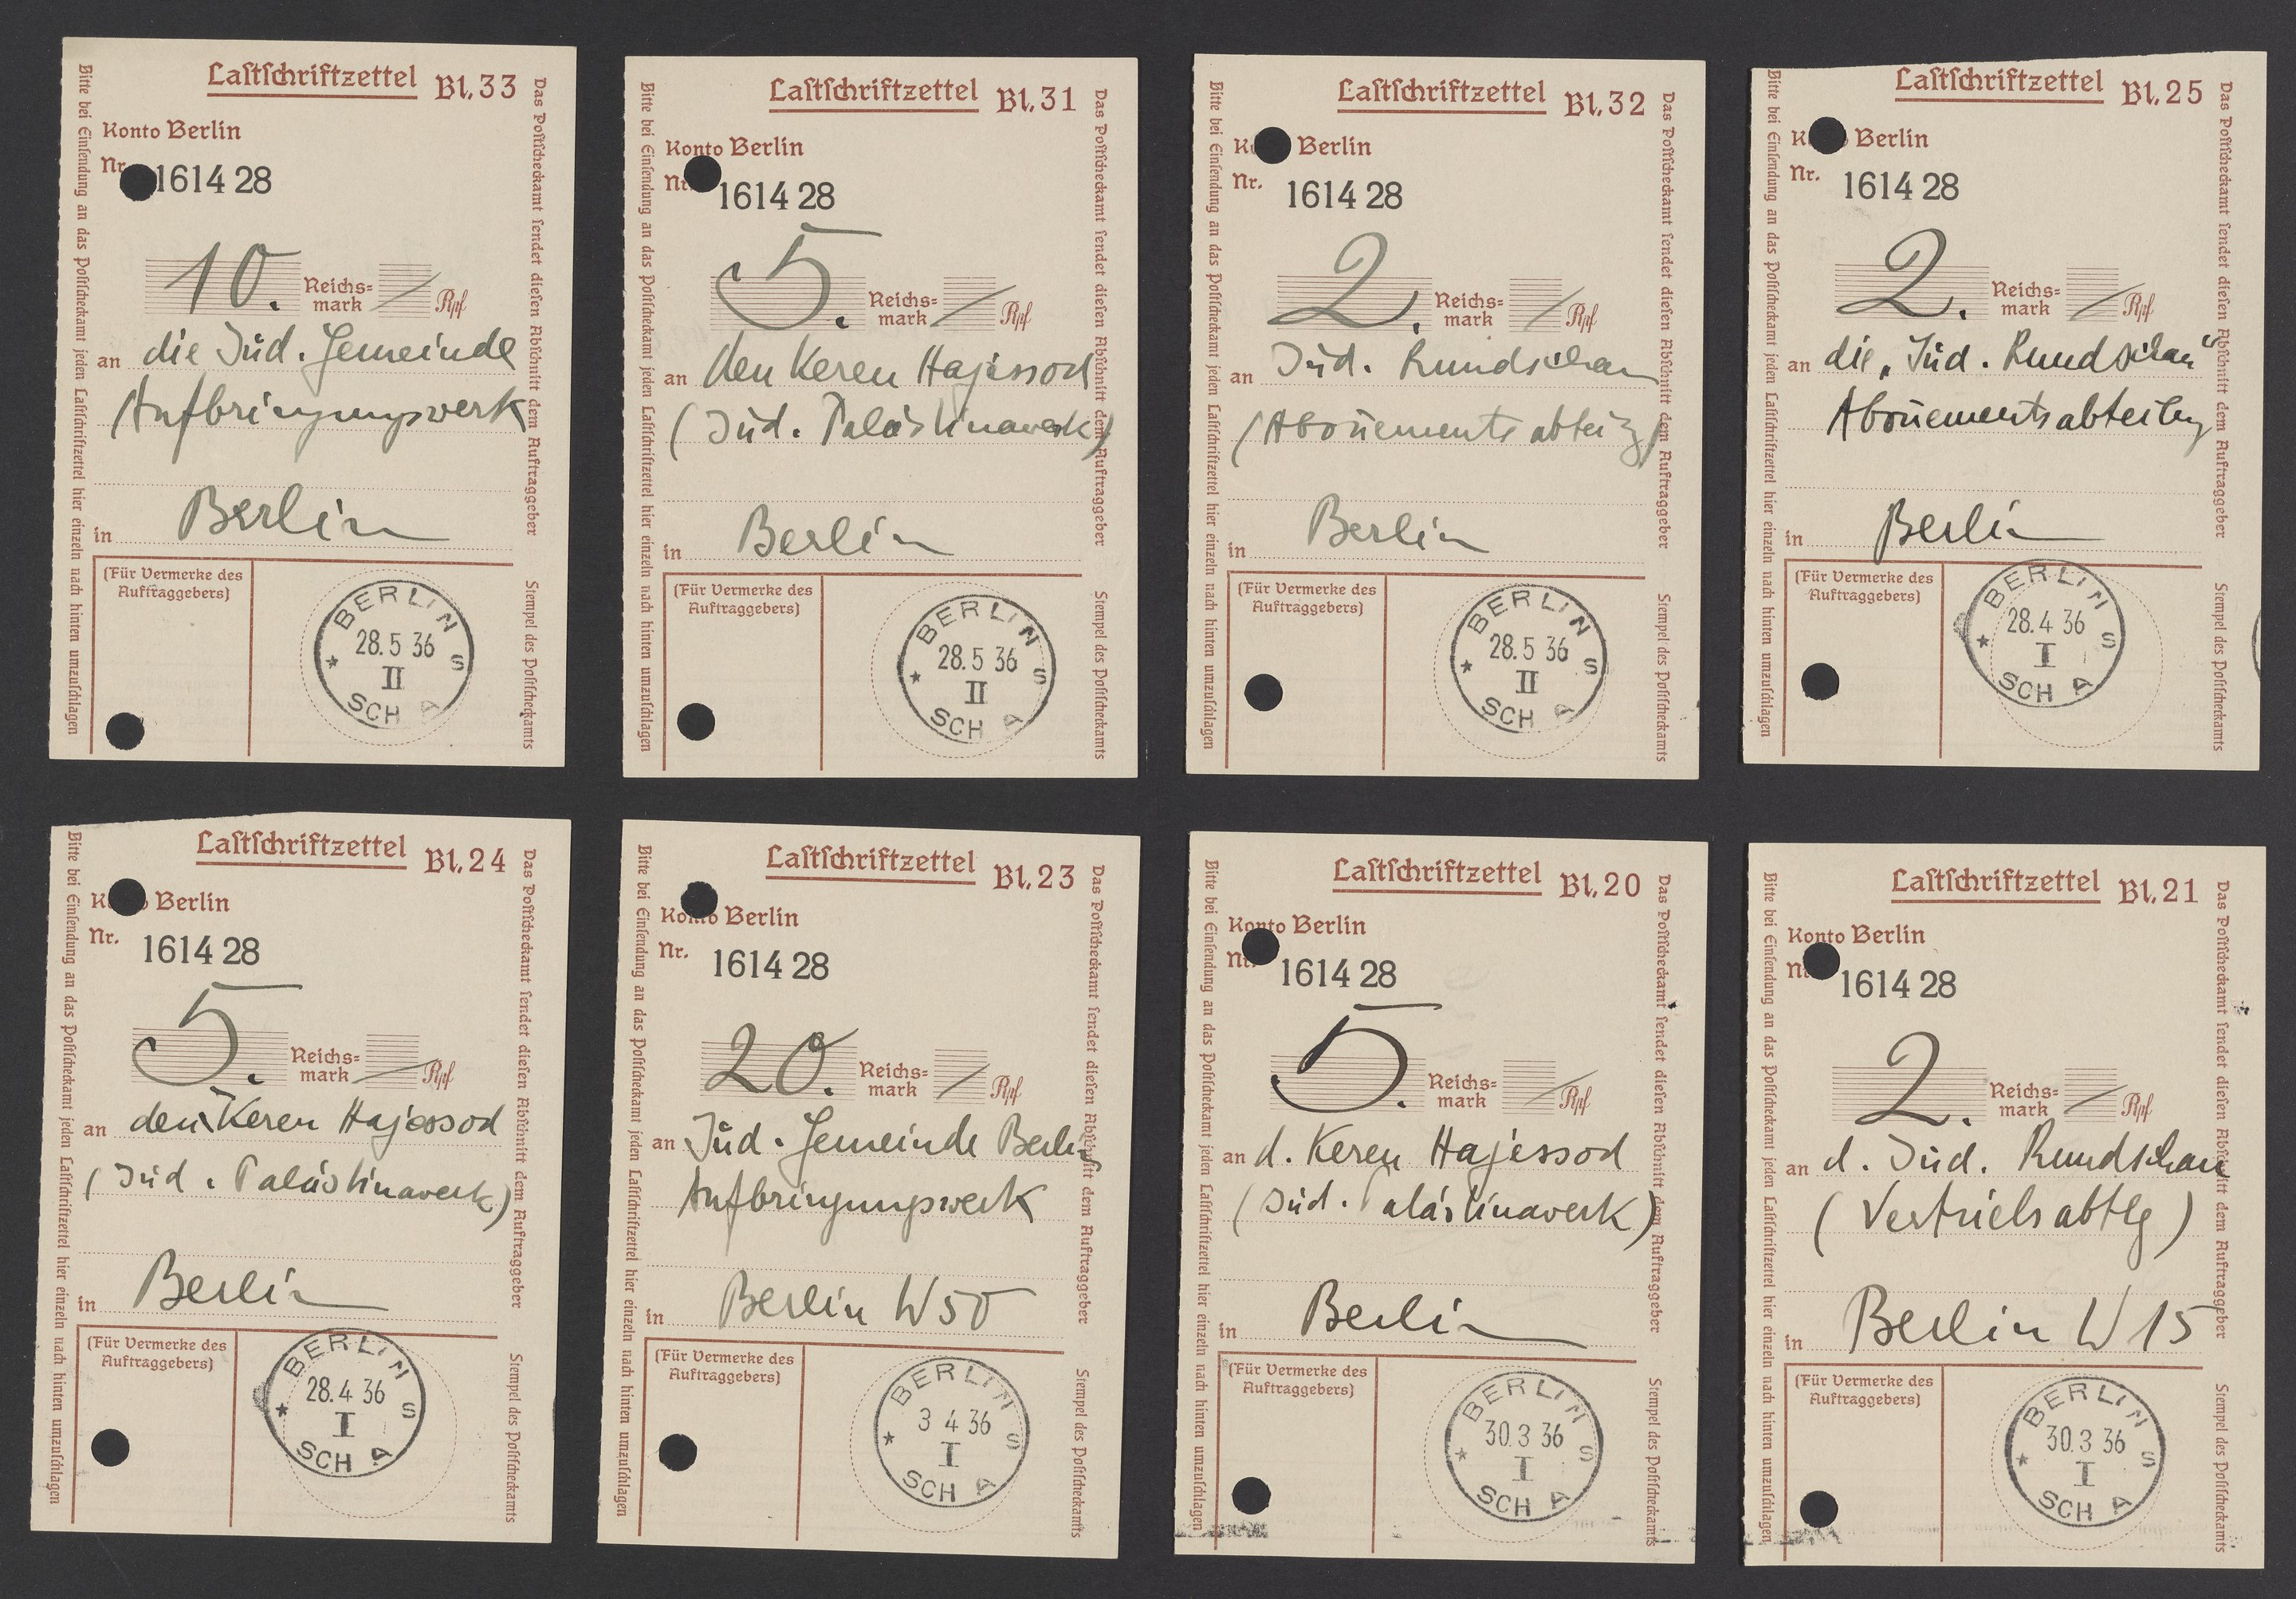 Lastschriftzettel Bl. 33
Konto Berlin
Nr. 1614 28
10. Reichs=
mark / Rpf
an die Jüd. Gemeinde
Aufbringungswerk
in Berlin
(Für Vermerke des
Auftraggebers)
BERLIN S
28.5 36
II
SCH A
Bitte bei Einsendung an das Postscheckamt jeden Lastschriftzettel hier einzeln nach hinten umzuschlagen
Das Postscheckamt sendet diesen Abschnitt dem Auftraggeber
Stempel des Postscheckamts
Lastschriftzettel Bl. 31
Konto Berlin
Nr. 1614 28
5. Reichs=
mark / Rpf
an den Keren Hajessod
(Jüd. Palästinawerk)
in Berlin
(Für Vermerke des
Auftraggebers)
BERLIN S
28.5 36
II
SCH A
Bitte bei Einsendung an das Postscheckamt jeden Lastschriftzettel hier einzeln nach hinten umzuschlagen
Das Postscheckamt sendet diesen Abschnitt dem Auftraggeber
Stempel des Postscheckamts
Lastschriftzettel Bl. 32
Konto Berlin
Nr. 1614 28
2. Reichs=
mark / Rpf
an Jüd. Rundschau
(Abonements abteilg)
in Berlin
(Für Vermerke des
Auftraggebers)
BERLIN S
28.5 36
II
SCH A
Bitte bei Einsendung an das Postscheckamt jeden Lastschriftzettel hier einzeln nach hinten umzuschlagen
Das Postscheckamt sendet diesen Abschnitt dem Auftraggeber
Stempel des Postscheckamts
Lastschriftzettel Bl. 25
Konto Berlin
Nr. 1614 28
2. Reichs=
mark / Rpf
an die „Jüd. Rundschau“
Abonementsabteilg
in Berlin
(Für Vermerke des
Auftraggebers)
BERLIN S
28.4 36
I
SCH A
Bitte bei Einsendung an das Postscheckamt jeden Lastschriftzettel hier einzeln nach hinten umzuschlagen
Das Postscheckamt sendet diesen Abschnitt dem Auftraggeber
Stempel des Postscheckamts
Lastschriftzettel Bl. 24
Konto Berlin
Nr. 1614 28
5. Reichs=
mark / Rpf
an den Keren Hajessod
(Jüd. Palästinawerk)
in Berlin
(Für Vermerke des
Auftraggebers)
BERLIN S
28.4 36
I
SCH A
Bitte bei Einsendung an das Postscheckamt jeden Lastschriftzettel hier einzeln nach hinten umzuschlagen
Das Postscheckamt sendet diesen Abschnitt dem Auftraggeber
Stempel des Postscheckamts
Lastschriftzettel Bl. 23
Konto Berlin
Nr. 1614 28
20. Reichs=
mark / Rpf
an Jüd. Gemeinde Berlin
Aufbringungswerk
in Berlin W 50
(Für Vermerke des
Auftraggebers)
BERLIN S
3 4 36
I
SCH A
Bitte bei Einsendung an das Postscheckamt jeden Lastschriftzettel hier einzeln nach hinten umzuschlagen
Das Postscheckamt sendet diesen Abschnitt dem Auftraggeber
Stempel des Postscheckamts
Lastschriftzettel Bl. 20
Konto Berlin
Nr. 1614 28
5. Reichs=
mark / Rpf
an d. Keren Hajessod
(Jüd. Palästinawerk)
in Berlin
(Für Vermerke des
Auftraggebers)
BERLIN S
30.3 36
I
SCH A
Bitte bei Einsendung an das Postscheckamt jeden Lastschriftzettel hier einzeln nach hinten umzuschlagen
Das Postscheckamt sendet diesen Abschnitt dem Auftraggeber
Stempel des Postscheckamts
Lastschriftzettel Bl. 21
Konto Berlin
Nr. 1614 28
2. Reichs=
mark / Rpf
an d. Jüd. Rundschau
(Vertriebsabtlg)
in Berlin W 15
(Für Vermerke des
Auftraggebers)
BERLIN S
30.3 36
I
SCH A
Bitte bei Einsendung an das Postscheckamt jeden Lastschriftzettel hier einzeln nach hinten umzuschlagen
Das Postscheckamt sendet diesen Abschnitt dem Auftraggeber
Stempel des Postscheckamts